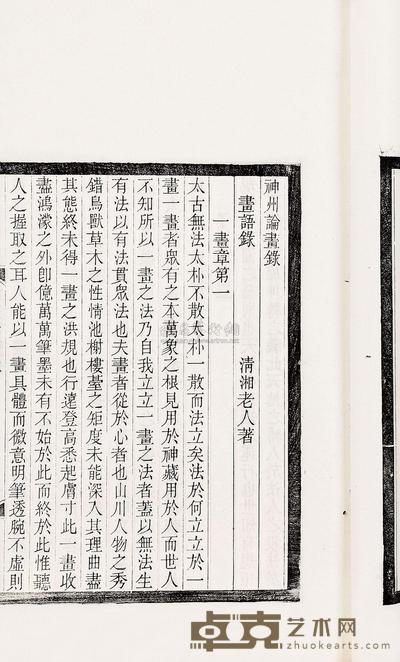 神州論畫錄
畫語錄 清湘老人著
一畫章第一
太古無法太朴不散太朴一散而法立矣法於何立立於一
畫一畫者眾有之本萬象之根見用於神藏用於人而世人
不知所以一畫之法乃自我立立一畫之法者蓋以無法生
有法以有法貫眾法也夫畫者從於心者也山川人物之秀
錯鳥獸草木之性情池榭樓臺之矩度未能深入其理曲盡
其態終未得一畫之洪規也行遠登高悉起膚寸此一畫收
盡鴻濛之外卽億萬萬筆墨未有不始於此而終於此惟聽
人之握取之耳人能以一畫具體而微意明筆透腕不虛則
卓克艺术网
zhuokearts.com